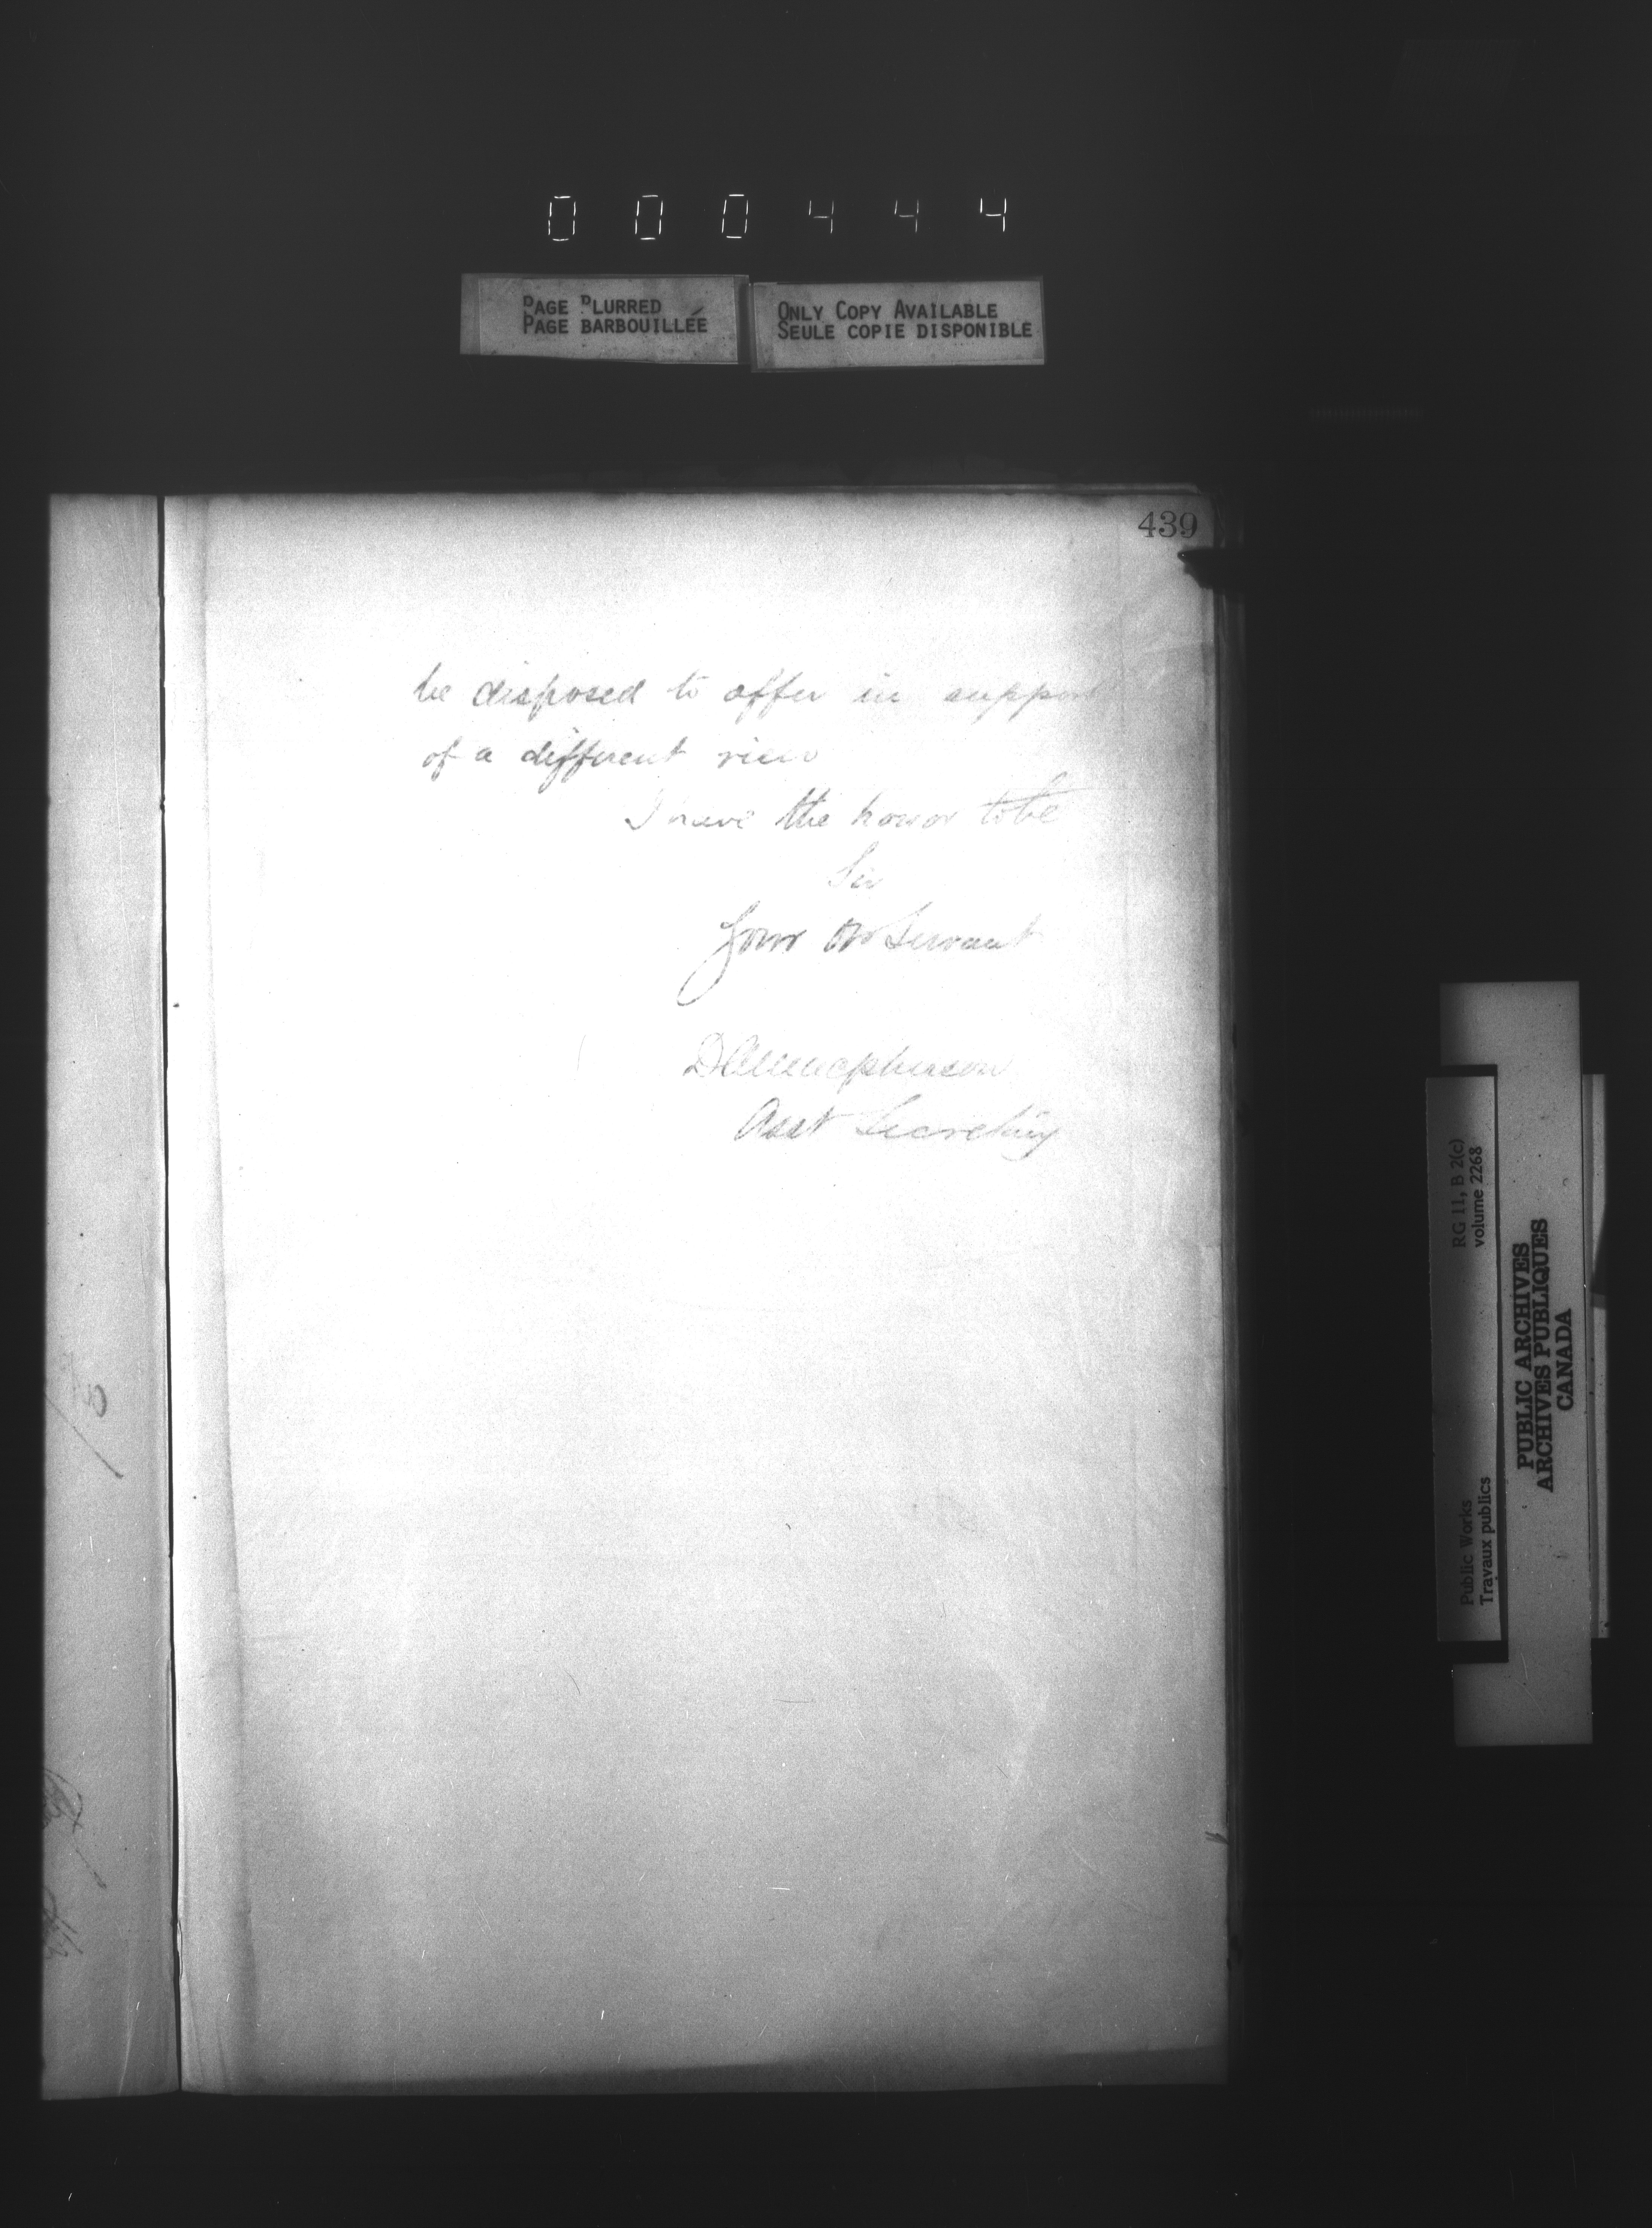 000444
PAGE BLURRED
PAGE BARBOUILLÉE
ONLY COPY AVAILABLE
SEULE COPIE DISPONIBLE
439
be disposed to offer in support
of a different view
I have the honor to be
Sir
Your Ob Servant
Macpherson
Asst Secretary
RG 11, B 2(c)
volume 2268
Public Works
Travaux publics
PUBLIC ARCHIVES
ARCHIVES PUBLIQUES
CANADA